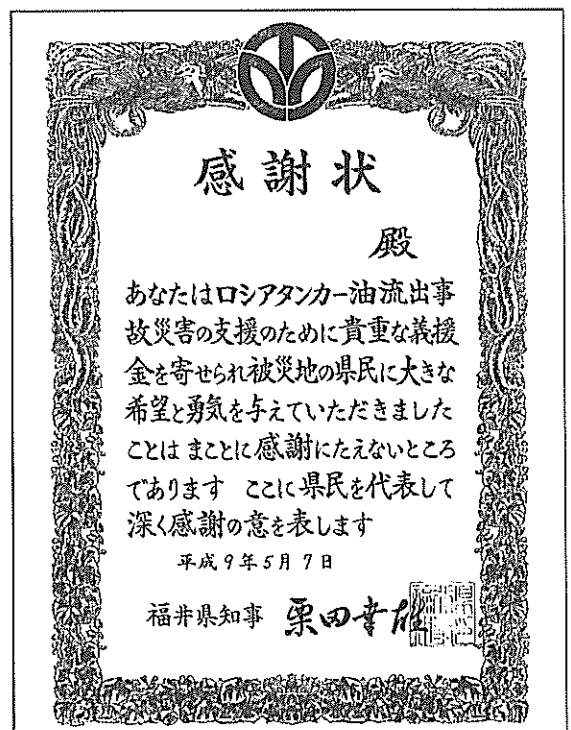 感謝状
殿
あなたはロシアタンカー油流出事
故災害の支援のために貴重な義援
金を寄せられ被災地の県民に大きな
希望と勇気を与えていただきました
ことは まことに感謝にたえないところ
であります ここに県民を代表して
深く感謝の意を表します
平成9年5月7日
福井県知事 栗田幸雄